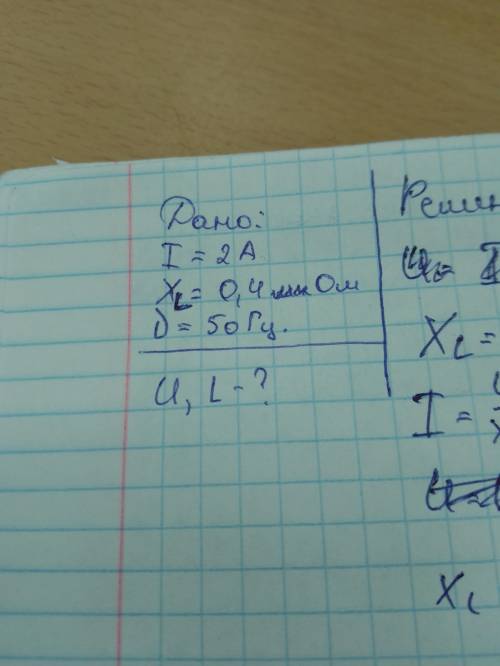 Дано:
I = 2А
XL = 0,4 Ом
ν = 50Гц.
U, L - ?
Решен
U = I
XL =
I = U
XL